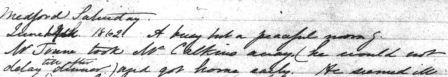 Medford Saturday.
June 1862. A busy but a peaceful morng.
Mr Towne took Mr Calkins away (he would not
delay till after dinner) and got home early. He seemed